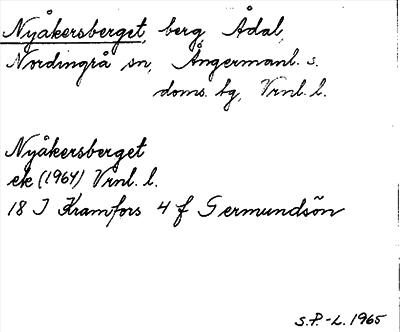 Nyåkersberget, berg Ådal,
Nordingrå sn, Ångermanl. s.
doms. bg, Vrnl. l.
Nyåkersberget
ek (1964) Vrnl. l.
18 I Kramfors 4 f Germundsön
S.P.-L. 1965